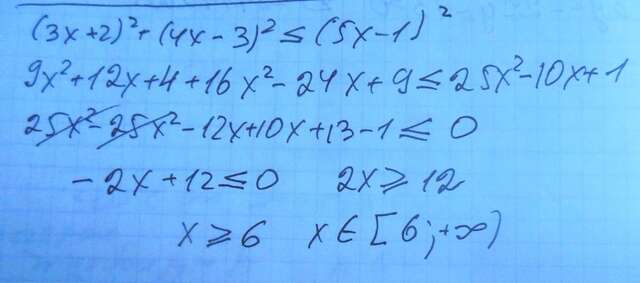 (3x+2)²+(4x-3)²≤(5x-1)²
9x²+12x+4+16x²-24x+9≤25x²-10x+1
25x²-25x²-12x+10x+13-1≤0
-2x+12≤0 2x≥12
x≥6 x∈[6;+∞)